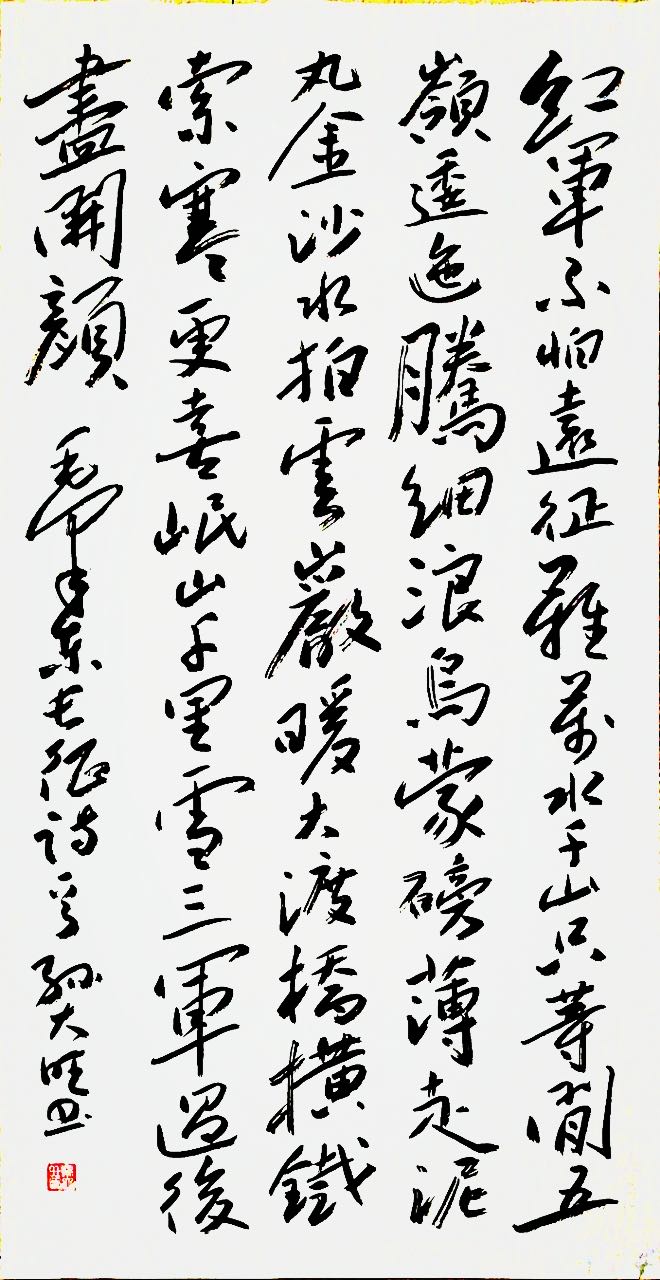 紅軍不怕遠征難萬水千山只等閒五
嶺逶迤騰細浪烏蒙磅薄走泥
丸金沙水拍雲巖暖大渡橋橫鐵
索寒更喜岷山千里雪三軍過後
盡開顏 毛澤東長征詩一首 孫大旺書